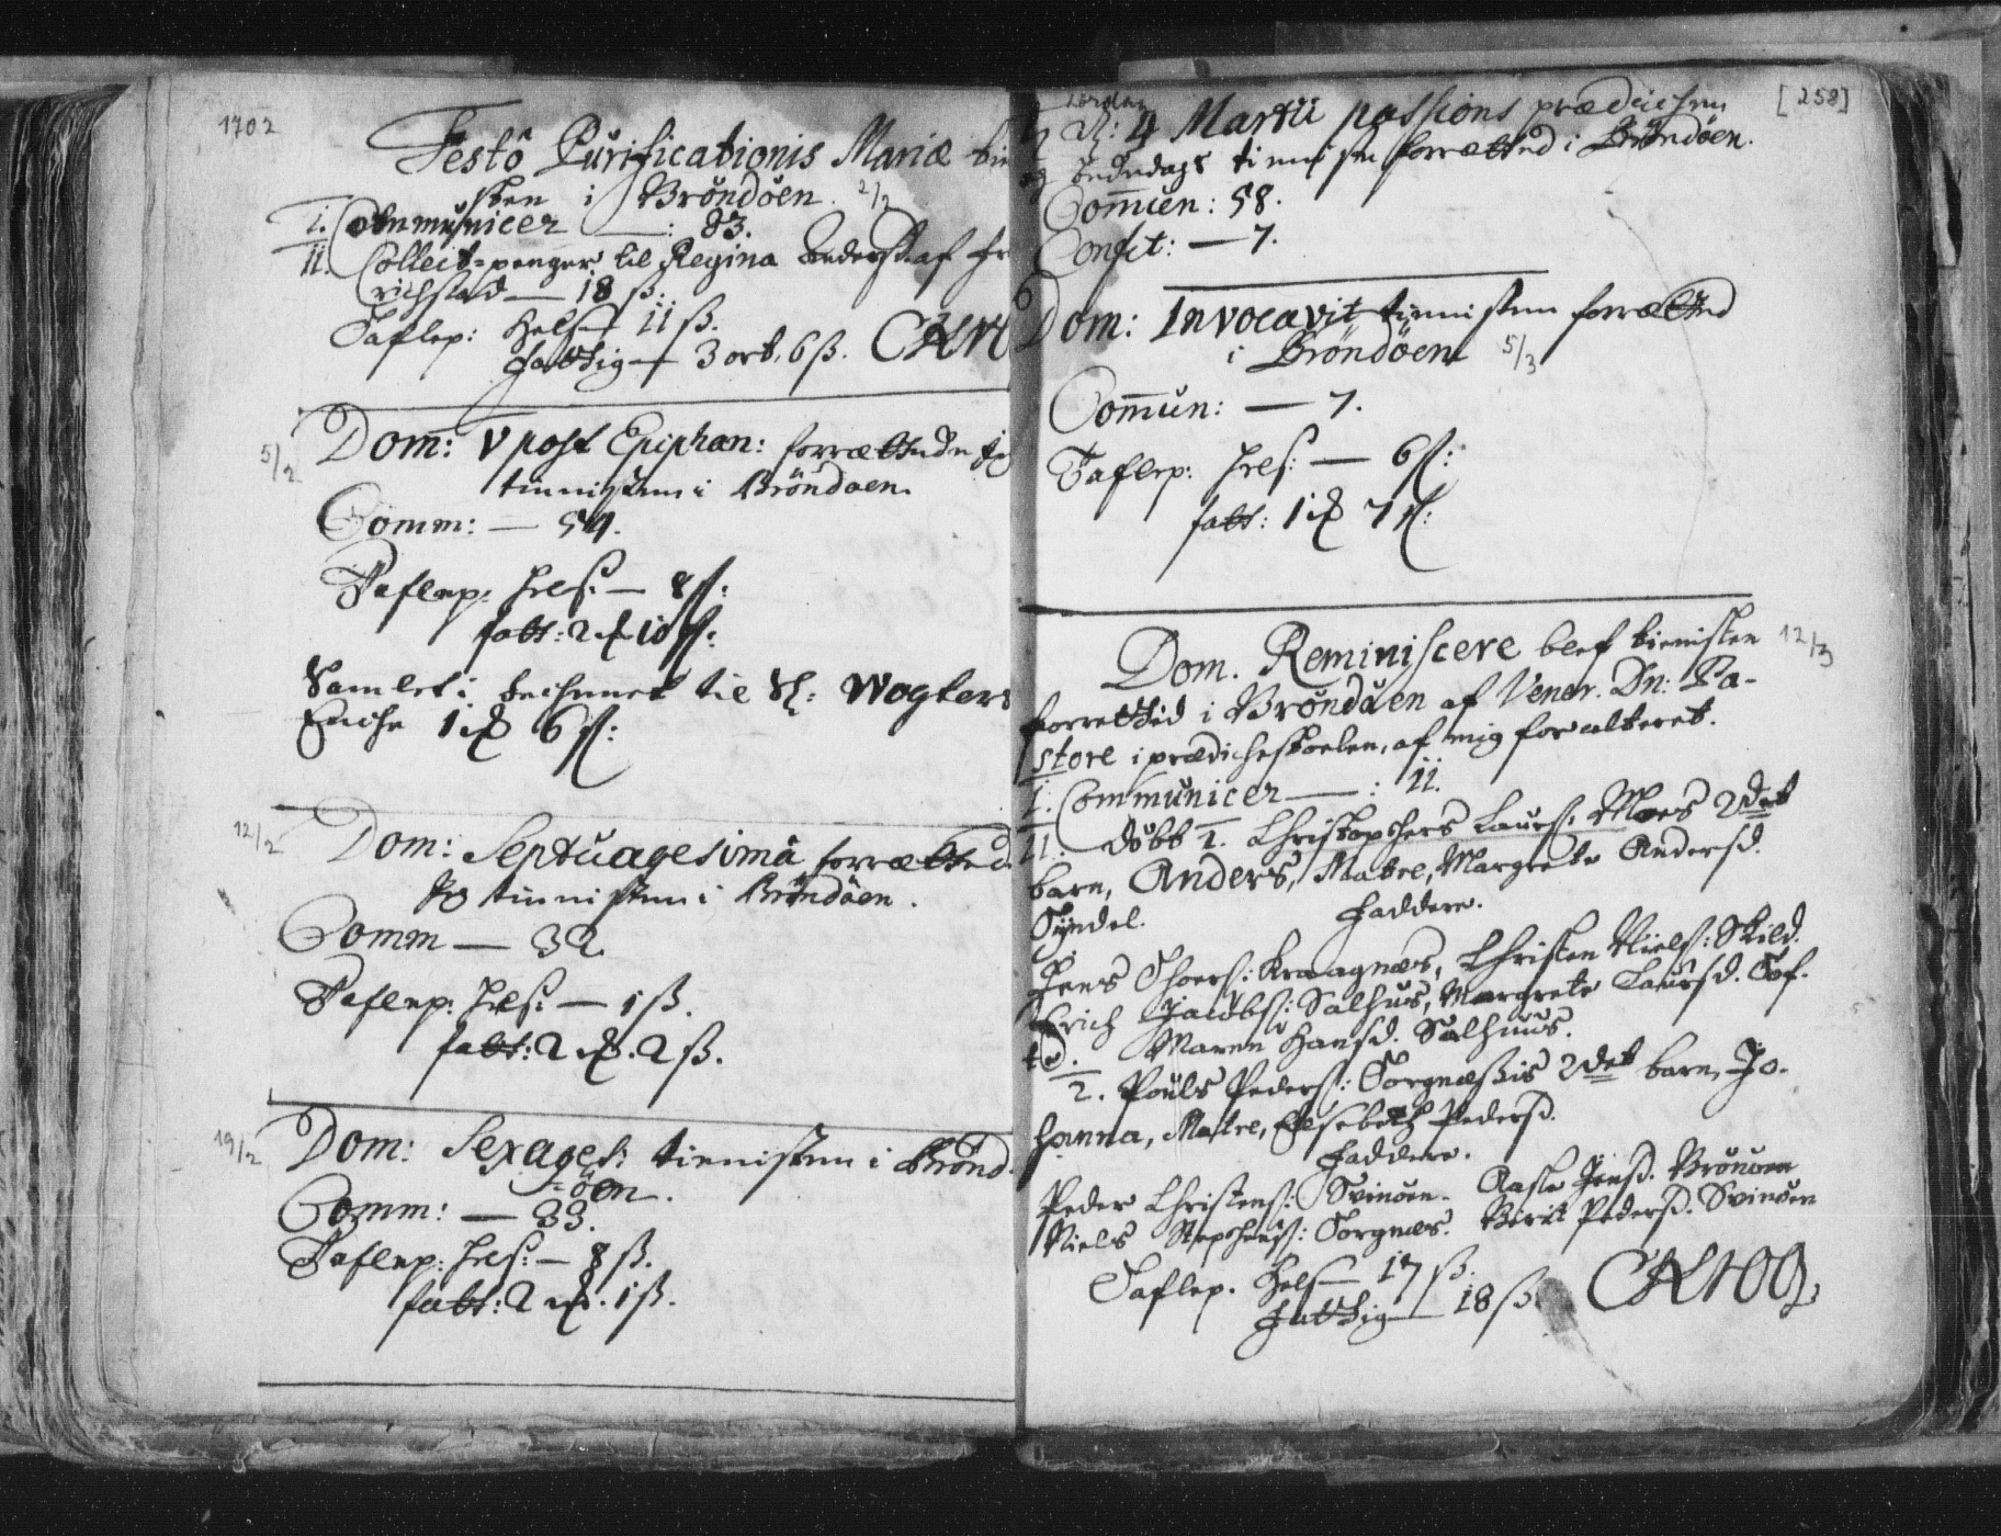 1702
Festo Purificationis Mariæ
sten i Brøndøen. 2/2
I. Communicer — : 83.
II. Collect-penger til Regina Anders. af Fr
richstad — 18 ß:
Taflep: Hels — 11 ß.
fattig — 3 ort. 6 ß.
5/2
Dom: V post Epiphan: forrættede jeg
tienisten i Brøndøen.
Comm: — 54.
Taflep: Hels: — 8 ß:
fatt: 2 10 ß:
Samlet i til Sl: Wogters
Enche 1 6 ß:
12/2
Dom: Septuagesima forrætted
Jeg tienisten i Brøndøen.
Comm — 32
Taflep: Hels: — 1 ß.
fatt: 2 . 2 ß.
19/2
Dom: Sexages: tienisten i Brønd-
=øen.
Comm: — 33.
Taflep: Hels: — 8 ß.
fatt: 2 . 1 ß.
[258]
4 Martii passions prædichen
og bededags tienisten forrætted i Brøndøen.
Commun: 58.
Confit: — 7.
Dom: Invocavit tienisten forrætted
i Brøndøen 5/3
Commun: — 7.
Taflep: Hels: — 6 ß:
fatt: 1 7 ß:
Dom. Reminiscere blef tienisten 12/3
forrettid i Brøndøen af Vener. Dn: Pa-
store i prædichestoelen, af mig for alteret.
I. Communicer — : 11.
II. døbt 1. Christophers Laurs: Moes 2det
barn, Anders, Matre, Margrete Andersd.
Tyndel. Faddere.
Jens Thoers: Kraagnæs, Christen Niels: Skild.
Erich Jacobs: Salhuus, Margrete Laursd. Tof-
te. Maren Hansd. Salhuus.
2. Pouls Peders: Torgnæssis 2det barn, Jo-
hanna, Matre, Elsebeth Pedersd.
Faddere.
Peder Christens: Svinøen. Aasle Jensd. Brønøen
Niels Stephens: Torgnæs. Berit Pedersd. Svinøen
Taflep. Hels — 17 ß.
Fattig — 18 ß.